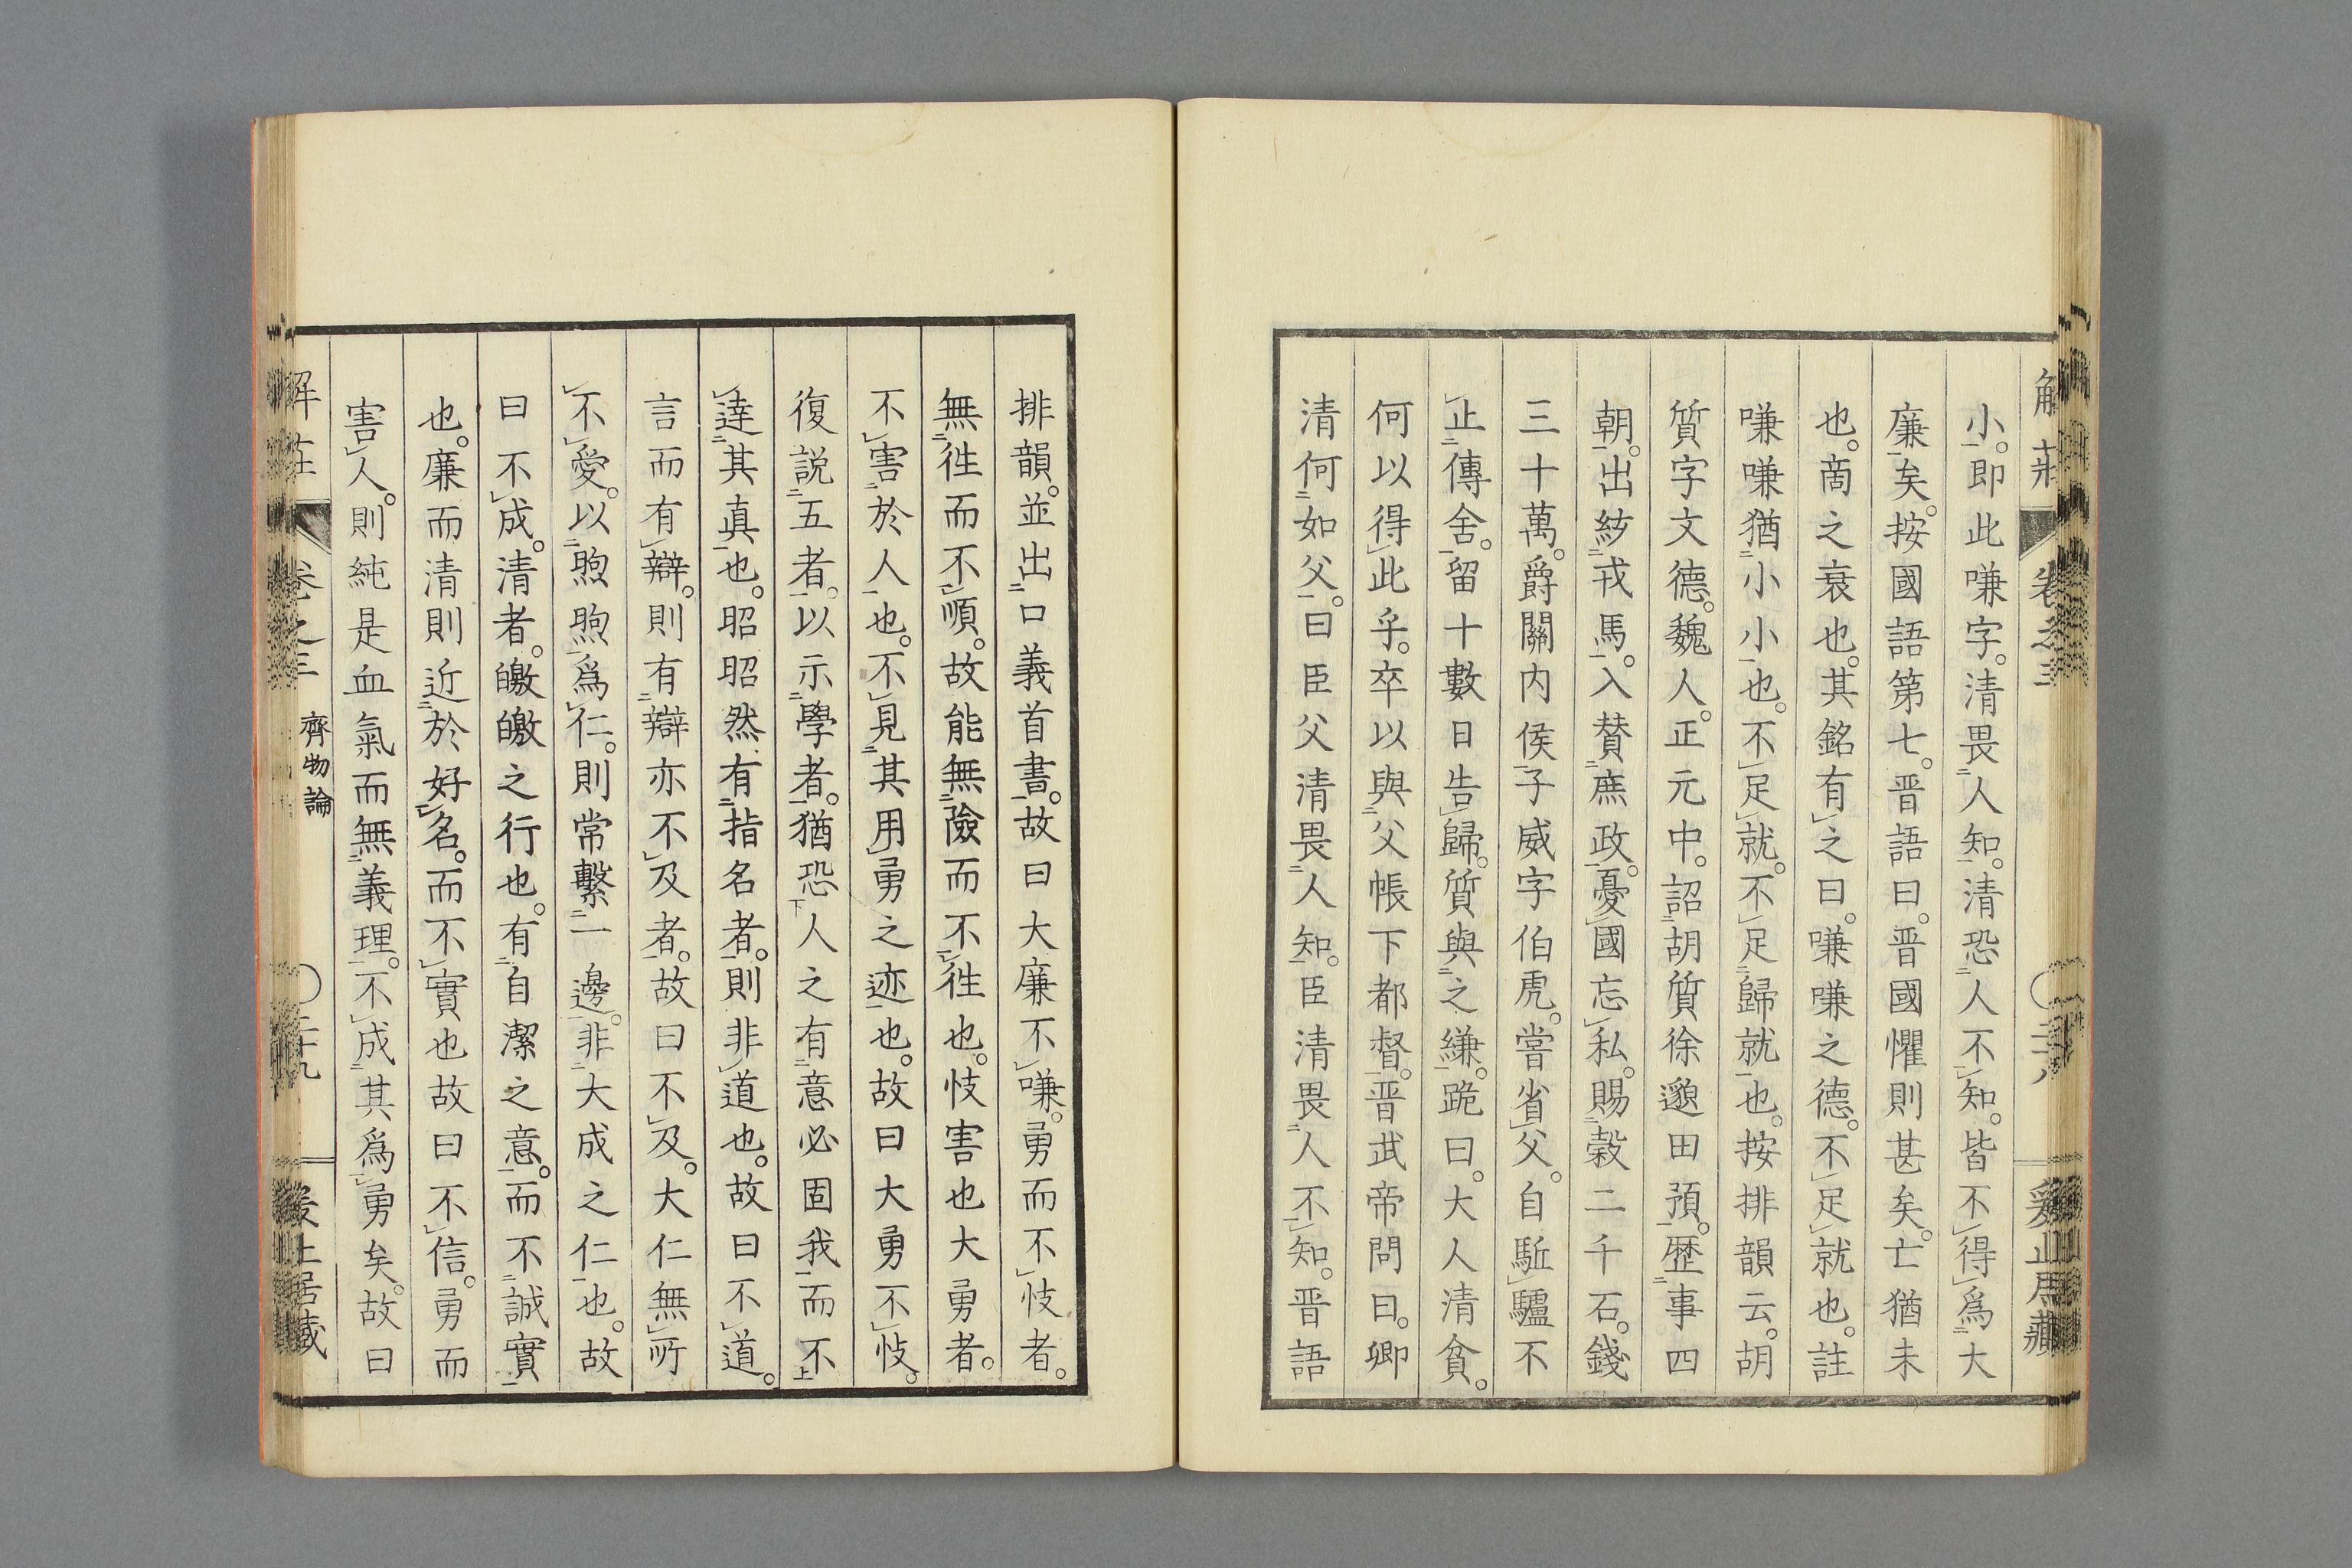 小。即此嗛字。清畏人知。清恐人不知。皆不得爲大
廉矣。按國語第七。晋語曰。晋國懼則甚矣。亡猶未
也。啇之衰也。其銘有之曰。嗛嗛之德。不足就也。註
嗛嗛猶小小也。不足就。不足歸就也。按排韻云。胡
質字文德。魏人。正元中。詔胡質徐邈田預。歴事四
朝。出紡戎馬。入賛庶政。憂國忘私。賜穀二千石。錢
三十萬。爵關内侯子威字伯虎。嘗省父。自駈驢不
止傳舍。留十數日告歸。質與之縑。跪曰。大人清貧。
何以得此乎。卒以與父帳下都督。晋武帝問曰。卿
清何如父。曰臣父清畏人知。臣清畏人不知。晋語
排韻。並出口義首書。故曰大廉不嗛。勇而不忮者。
無徃而不順。故能無險而不徃也。忮害也大勇者。
不害於人也。不見其用勇之迹也。故曰大勇不忮。
復説五者。以示學者。猶恐人之有意必固我而不
達其真也。昭昭然有指名者。則非道也。故曰不道。
言而有辯。則有辯亦不及者。故曰不及。大仁無所
不愛。以煦煦爲仁。則常繫一邊。非大成之仁也。故
曰不成。清者。皦皦之行也。有自潔之意。而不誠實
也。廉而清則近於好名。而不實也故曰不信。勇而
害人。則純是血氣而無義理。不成其爲勇矣。故曰
卷之三
齊物論